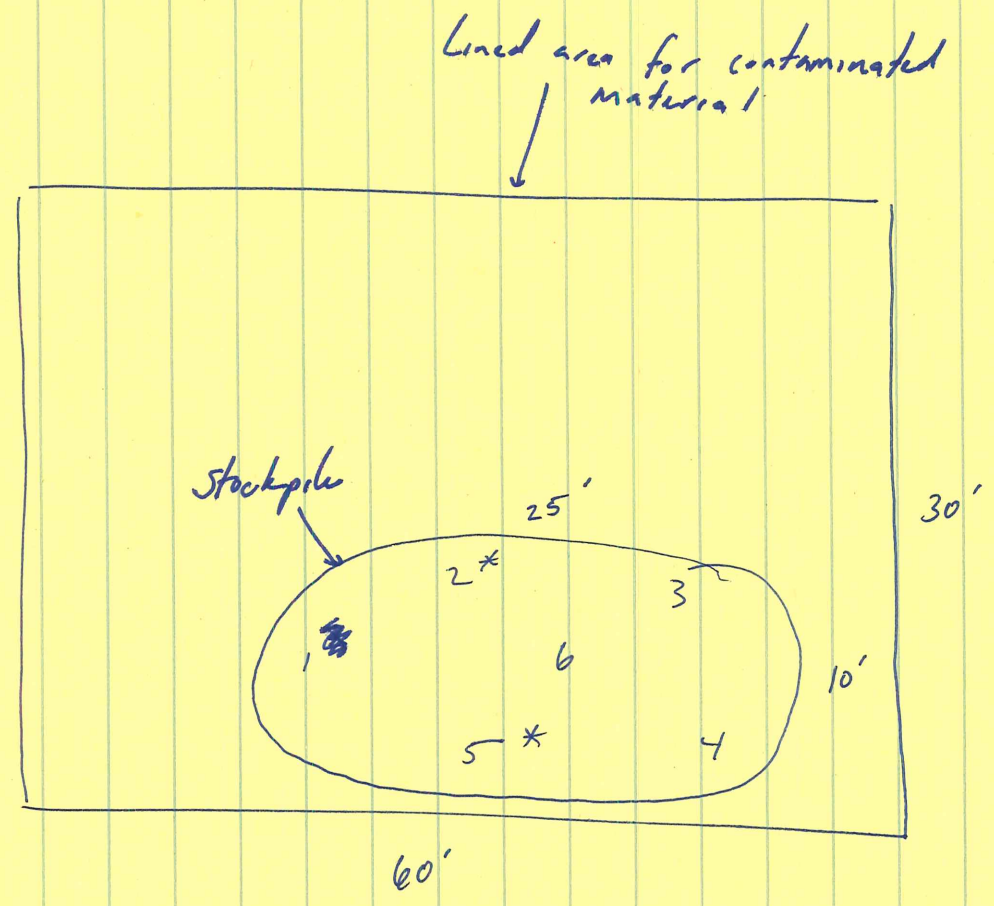 Lined area for contaminated
material
Stockpile
25'
30'
2 *
3
1
6
10'
5 *
4
60'